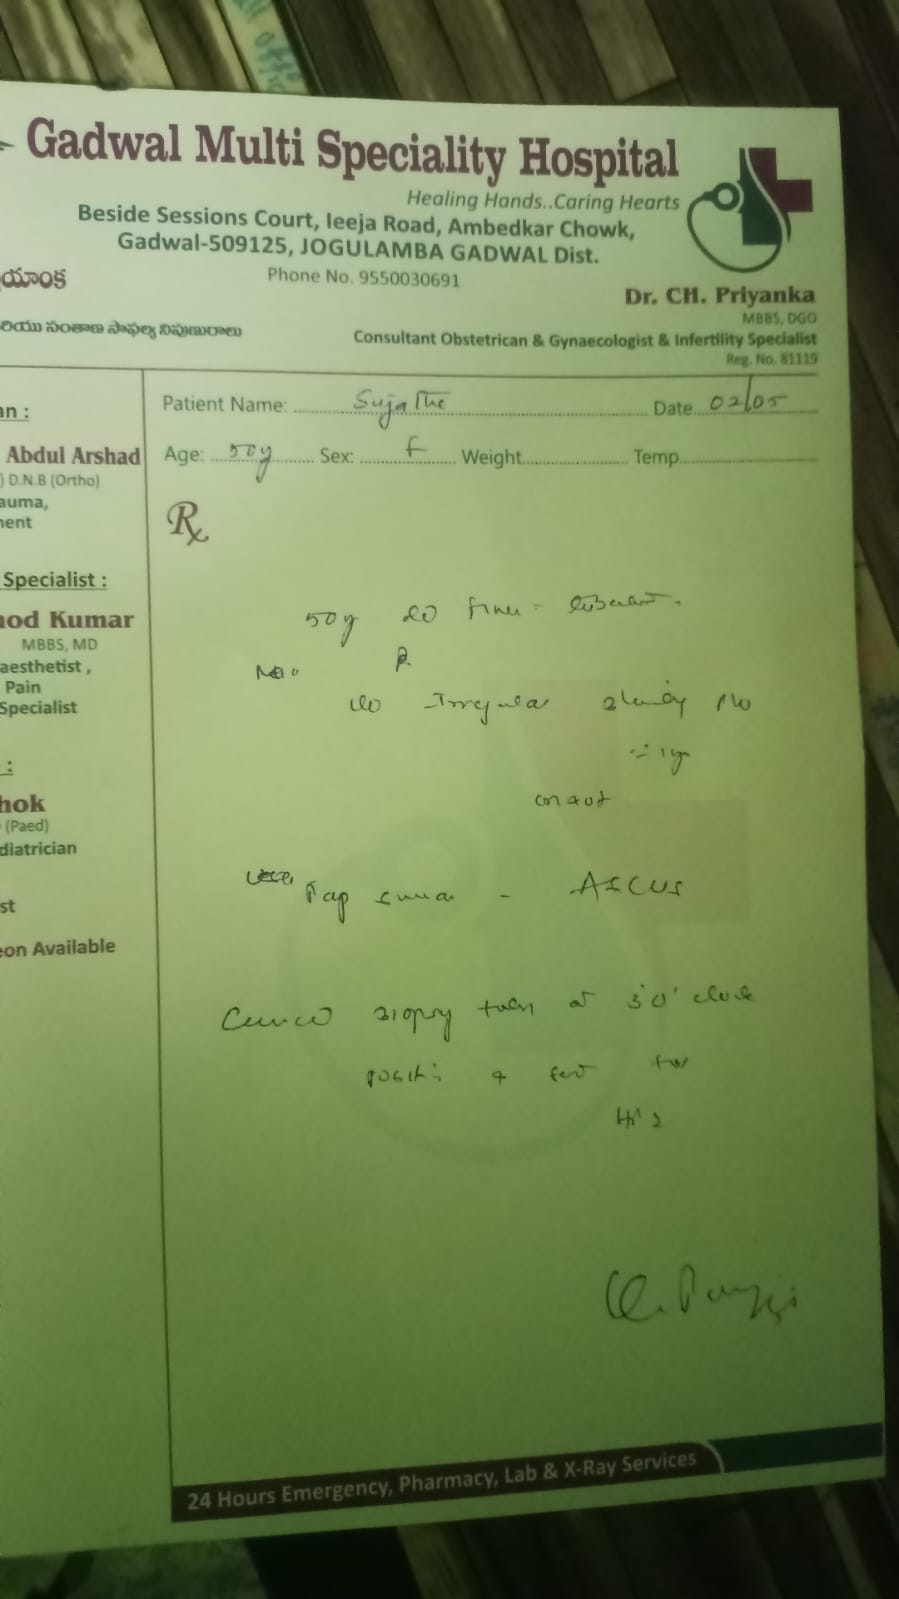 Gadwal Multi Speciality Hospital
Healing Hands..Caring Hearts
Beside Sessions Court, Ieeja Road, Ambedkar Chowk,
Gadwal-509125, JOGULAMBA GADWAL Dist.
Phone No. 9550030691
యాంక
Dr. CH. Priyanka
MBBS, DGO
Consultant Obstetrican & Gynaecologist & Infertility Specialist
Reg. No. 81119
రియు సంతాన సాఫల్య నిపుణురాలు
an :
Abdul Arshad
) D.N.B (Ortho)
auma,
nent
Specialist :
nod Kumar
MBBS, MD
aesthetist ,
Pain
Specialist
:
hok
(Paed)
diatrician
st
eon Available
Patient Name: Sujatha Date 02/05
Age: 50y Sex: F Weight Temp
Rx
50y
Irregular
1yr
Pap smear - ASCUS
Cervical Biopsy taken at 3'0' clock
position & sent for
24 Hours Emergency, Pharmacy, Lab & X-Ray Services